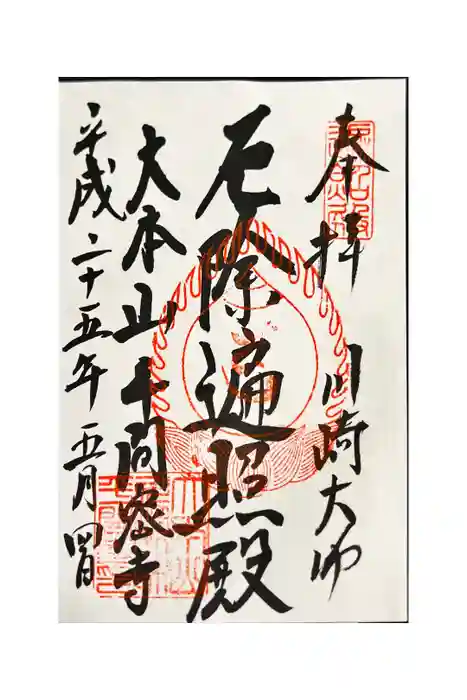 奉拝
川崎大師
厄除遍照殿
大本山平間密寺
平成二十五年五月四日